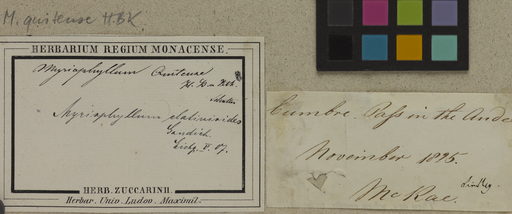 M. quitense HBK
HERBARIUM REGIUM MONACENSE.
Myriophyllum Quitense
H. B. Kth.
Myriophyllum elatinoides
Gaudich
Lichg. V. 07.
HERB. ZUCCARINII.
Herbar. Univ. Ludov. Maximil.
Cumbre Pass in the Ande
November 1825.
McRae.
Lindley.